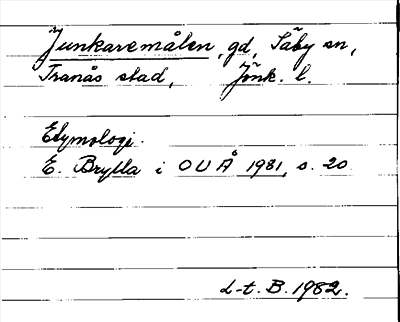 Junkaremålen, gd, Säby sn,
Tranås stad, Jönk. l.
Etymologi.
E. Brylla i OUÅ 1981, s. 20
L-t. B. 1982.